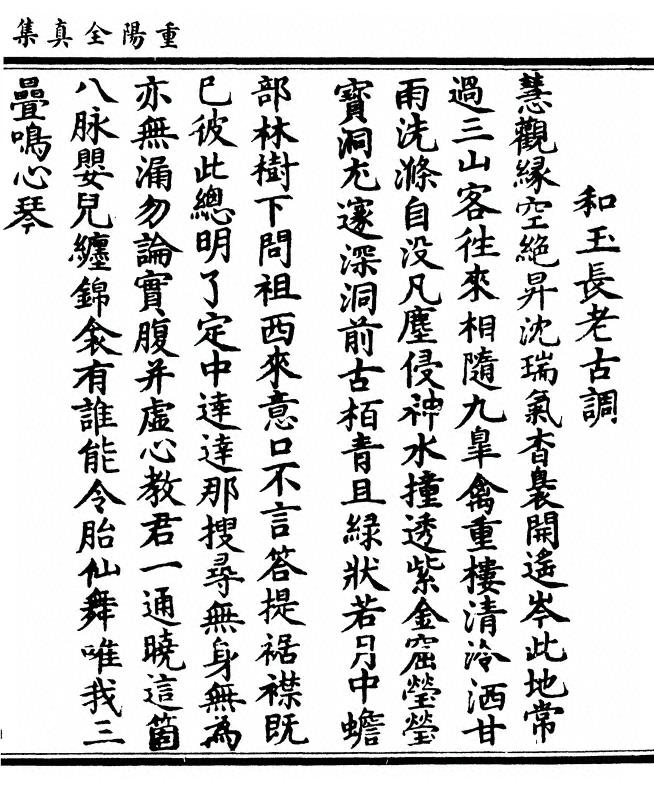 重陽全真集
和玉長老古調
慧觀緣空絶昇沈瑞氣杳裊開遙岑此地常
過三山客徃來相隨九臯禽重樓清泠洒甘
雨洗滌自没凡塵侵神水撞透紫金窟瑩瑩
寳洞尤邃深洞前古栢青且綠狀若月中蟾
部林樹下問祖西來意口不言答提裾襟既
巳彼此總明了定中達達那搜尋無身無為
亦無漏勿論實腹并虛心教君一通曉這箇
八脉嬰兒纏錦衾有誰能令胎仙舞唯我三
疊鳴心琴